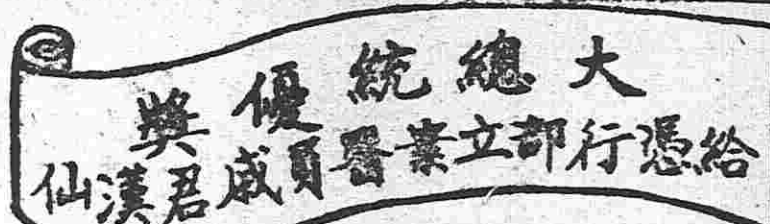 大總統優獎
給憑行部立業醫員戚君漢仙